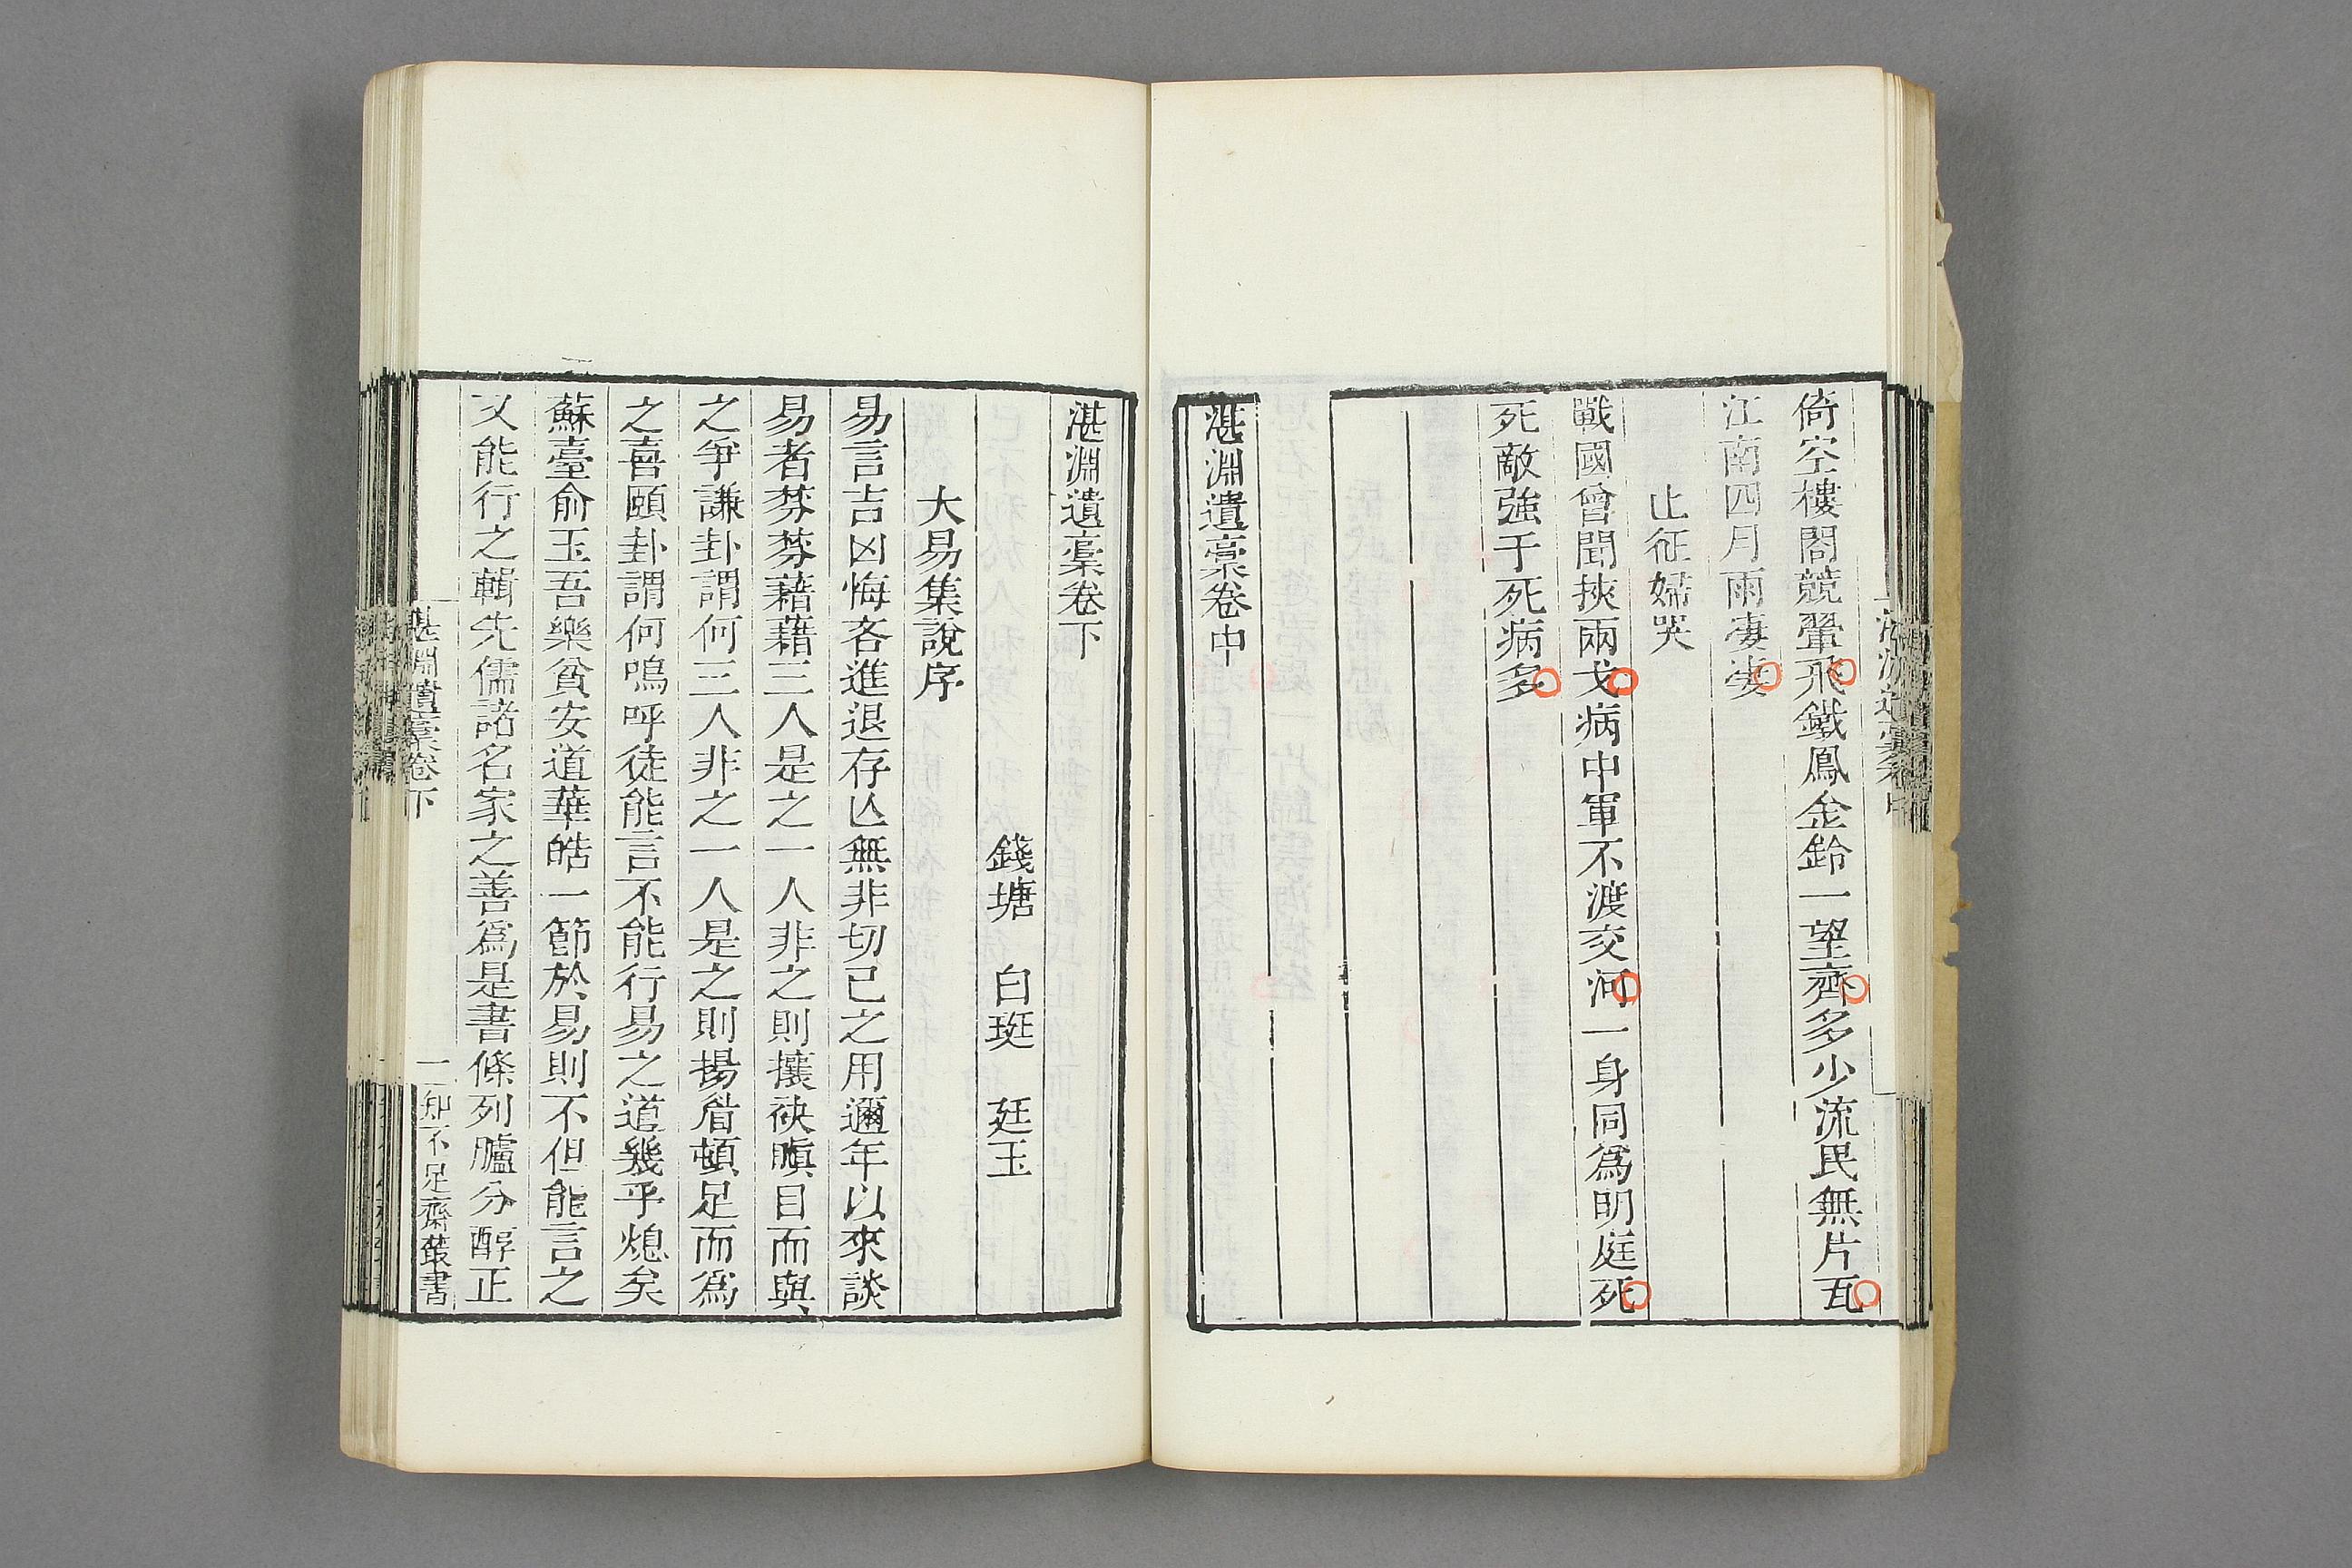 倚空樓閣競翬飛鐵鳳金鈴一望齊多少流民無片瓦
江南四月雨凄凄
止征婦哭
戰國曾聞挾兩戈病中軍不渡交河一身同爲明庭死
死敵強于死病多
湛淵遺稾卷中
湛淵遺稾卷下
錢塘 白珽 廷玉
大易集說序
易言吉凶悔吝進退存亾無非切已之用邇年以來談
易者棼棼藉藉三人是之一人非之則攘袂瞋目而與
之爭謙卦謂何三人非之一人是之則揚眉頓足而爲
之喜頤卦謂何嗚呼徒能言不能行易之道幾乎熄矣
蘇臺俞玉吾樂貧安道華皓一節於易則不但能言之
又能行之輯先儒諸名家之善爲是書條列臚分醇正
湛淵遺稾卷下
一
知不足齋叢書